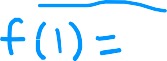 f(1) =